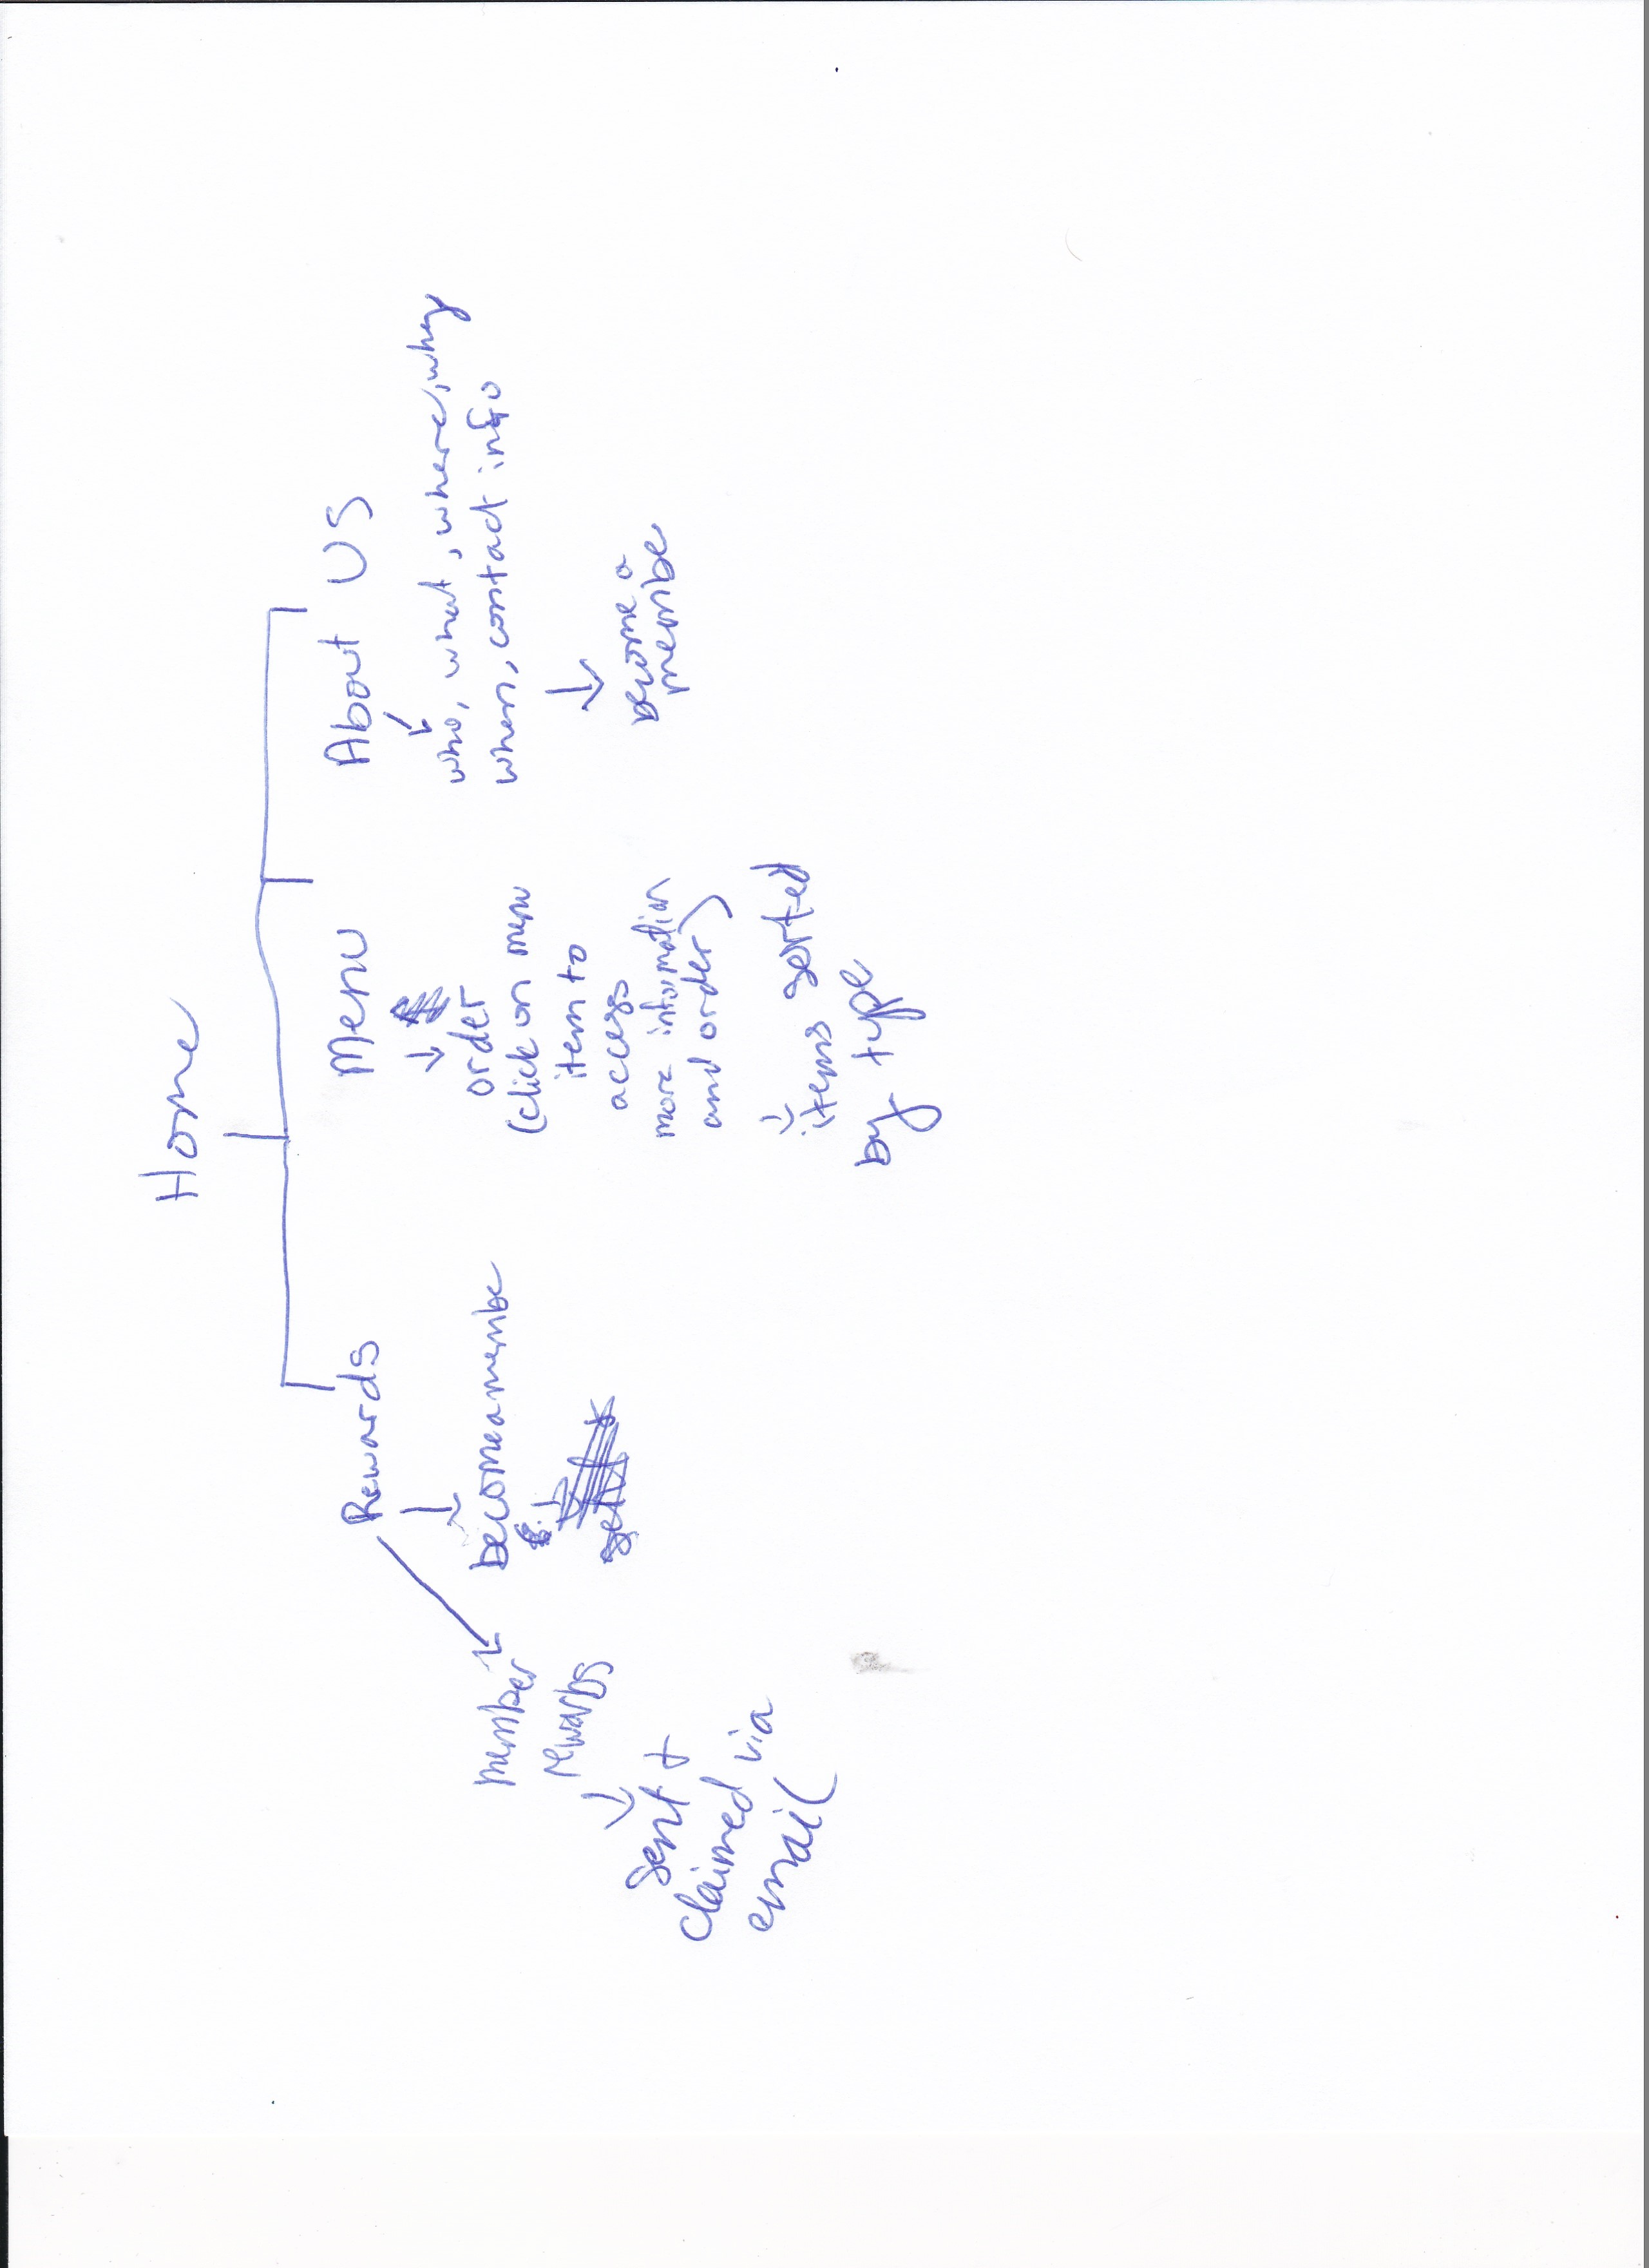 Home
Rewards
Menu
About US
member
rewards
sent +
claimed via
email
becomeamembe
order
(click on menu
item to
access
more information
and order)
items sorted
by type
who, what, where, why
when, contact info
become a
membe